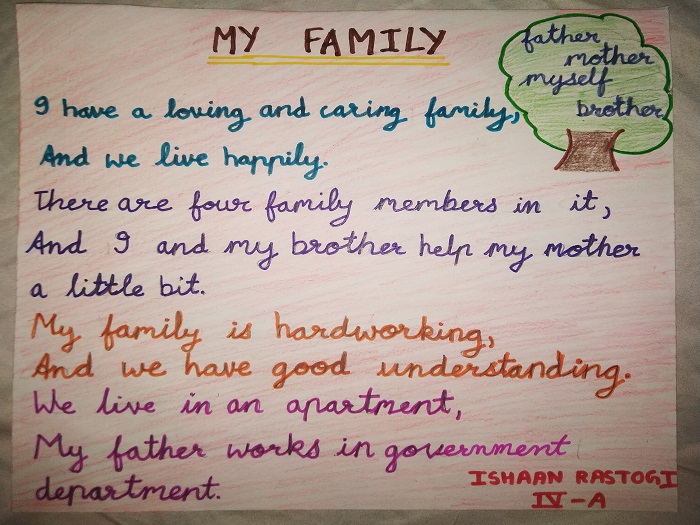 MY FAMILY
father
mother
myself
brother
I have a loving and caring family,
And we live happily.
There are four family members in it,
And I and my brother help my mother
a little bit.
My family is hardworking,
And we have good understanding.
We live in an apartment,
My father works in government
department.
ISHAAN RASTOGI
IV-A